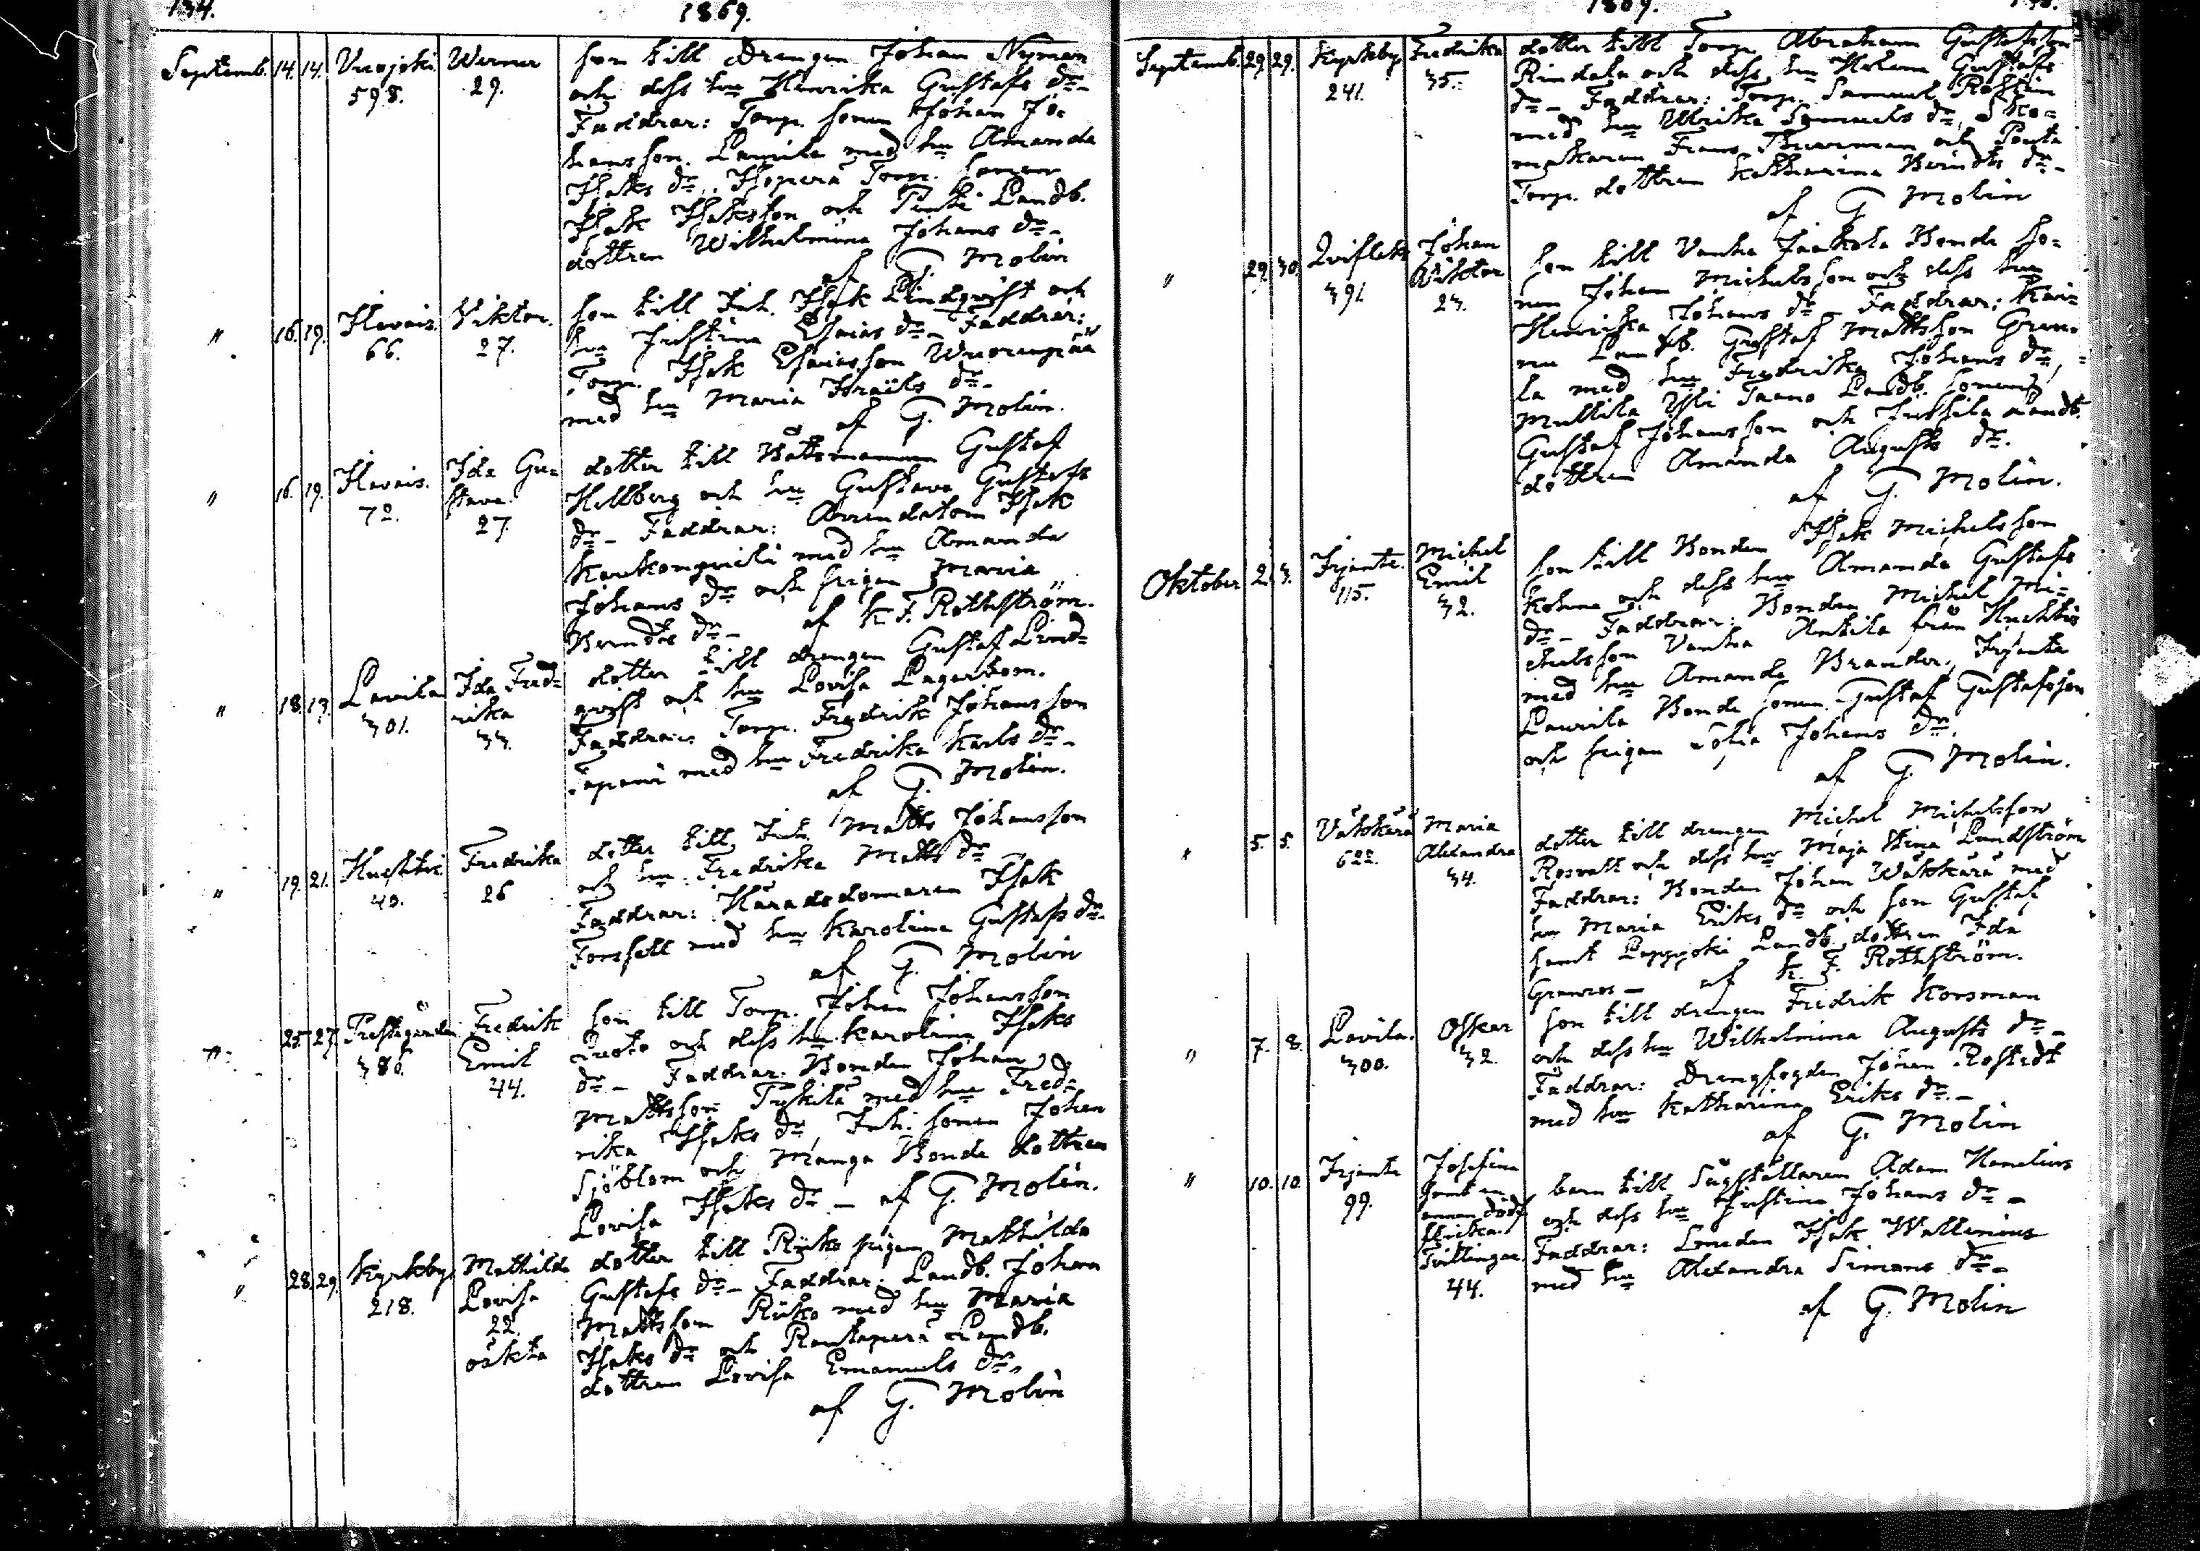 134.
1869.
Septemb. 14. 14. Vuojoki Werner son till Drengen Johan Nyman
598. 29. och dess hu Henrika Gustafs dr.
Faddrar: Torp. sonen Johan Jo-
hansson Laurila med hu Amanda
Isaks dr, Torp. sonen
Isak Isaksson och Landb.
dottren Wilhelmina Johans dr.
af G Molin
" 16. 19. Hevois. Viktor. son till Inh. Isak Lindqvist och
66. 27. hu Justina Esaias dr. Faddrar:
Torp. Isak Esaiasson
med hu Maria Israels dr.
af G. Molin.
" 16. 19. Hevois. Ida Gu- dotter till Båtsmannen Gustaf
72. stava Hellberg och hu Gustava Gustafs
27. dr. Faddrar: Arrendatorn Isak
med hu Amanda
Johans dr och pigan Maria
dr. af K. F. Rothström.
" 18. 19. Lavila Ida Fred- dotter till drengen Gustaf Lind-
301. rika qvist och hu Lovisa Lagerbom.
33. Faddrar: Torp. Fredrik Johansson
med hu Fredrika Karls dr.
af G. Molin.
" 19. 21. Huchtis Fredrika dotter till Inh. Matts Johansson
40. 26 och hu Fredrika Matts dr
Faddrar: Häradsdomaren Isak
Forssell med hu Karolina Gustafs dr.
af G. Molin
" 25. 27. Prestegården Fredrik son till Torp. Johan Johansson
386. Emil och dess hu Karolina Isaks
44. dr. Faddrar: Bonden Johan
Mattsson med hu Fred-
rika Isaks dr, Inh. sonen Johan
Sjöblom och Manga Bonde dottren
Lovisa Isaks dr – af G. Molin.
" 28. 29. Kyrkby Mathilda dotter till Riiko pigan Mathilda
218. Lovisa Gustafs dr. Faddrar: Landb. Johan
22. Mattsson Riiko med hu Maria
oäkta Isaks dr och Rautaperä Landb.
dottren Lovisa Emanuels dr.
af G. Molin
1869.
Septemb. 29. 29. Kyrkby Fredrika dotter till Torp. Abraham Gustafsson
241. 35. Rindala och dess hu Helena Gustafs
dr. Faddrar: Torp. Samuel
med hu Ulrika Samuels dr, Sko-
makaren Frans och
Torp. dottren Katharina dr.
af G Molin
" 29. 30. Qviflaks Johan son till Vanha Jaakola Bonde so-
391. Wiktor nen Johan Michelsson och dess hu
23. Henrika Johans dr. Faddrar:
Landb. Gustaf Mattsson
med hu Fredrika Johans dr,
Landb. sonen
Gustaf Johansson och Landb.
dottren Amanda Augusts dr.
af G. Molin.
Oktober 2. 3. Irjante Michel son till Bonden Isak Michelsson
115. Emil och dess hu Amanda Gustafs
32. dr. Faddrar: Bonden Michel Mi-
chelsson Vanha Anttila från Huchtis
med hu Amanda Brander, Irjante
Laurila Bonde sonen Gustaf Gustafsson
och pigan Sofia Johans dr.
af G. Molin.
" 5. 5. Väkkärä Maria dotter till drengen Michel Michelsson
622. Alexandra Rosvall och dess hu Maja Stina Lundström
34. Faddrar: Bonden Johan Wäkkärä med
hu Maria Eriks dr och son Gustaf
samt Landb. dottren Ida
Granros – af K. F. Rothström.
" 7. 8. Lavila. Oskar son till drengen Fredrik Korsman
300. 32. och dess hu Wilhelmina Augusts dr.
Faddrar: Drengfogden Johan Rostedt
med hu Katharina Eriks dr. –
af G. Molin
" 10. 10. Irjante Josefina barn till Adam Henelius
99. samt en och dess hu Justina Johans dr –
annan dödf. Faddrar: Isak Wallenius
Tvillingar. med hu Alexandra Simons dr.
44. af G. Molin